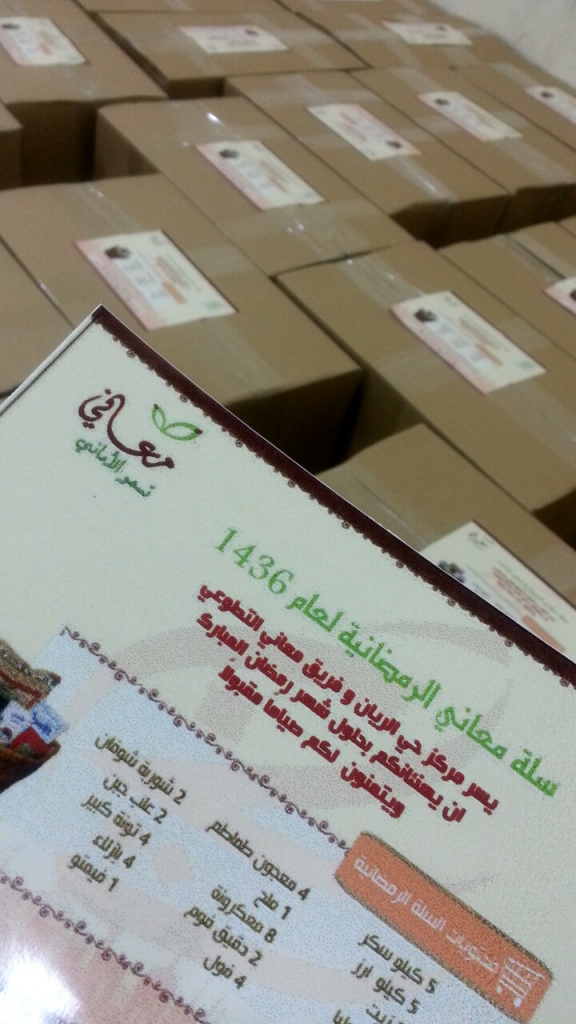 معاني
تسمو الأماني
سلة معاني الرمضانية لعام 1436
يسر مركز حي الريان و فريق معاني التطوعي
ان يهنئانكم بحلول شهر رمضان المبارك
ويتمنون لكم صياما مقبولاً
محتويات السلة الرمضانية
5 كيلو سكر
5 كيلو ارز
4 معجون طماطم
1 ملح
8 معكرونة
2 دقيق فوم
4 فول
2 شوربة شوفان
2 علب جبن
4 تونة كبير
4 بازلاء
1 فيمتو